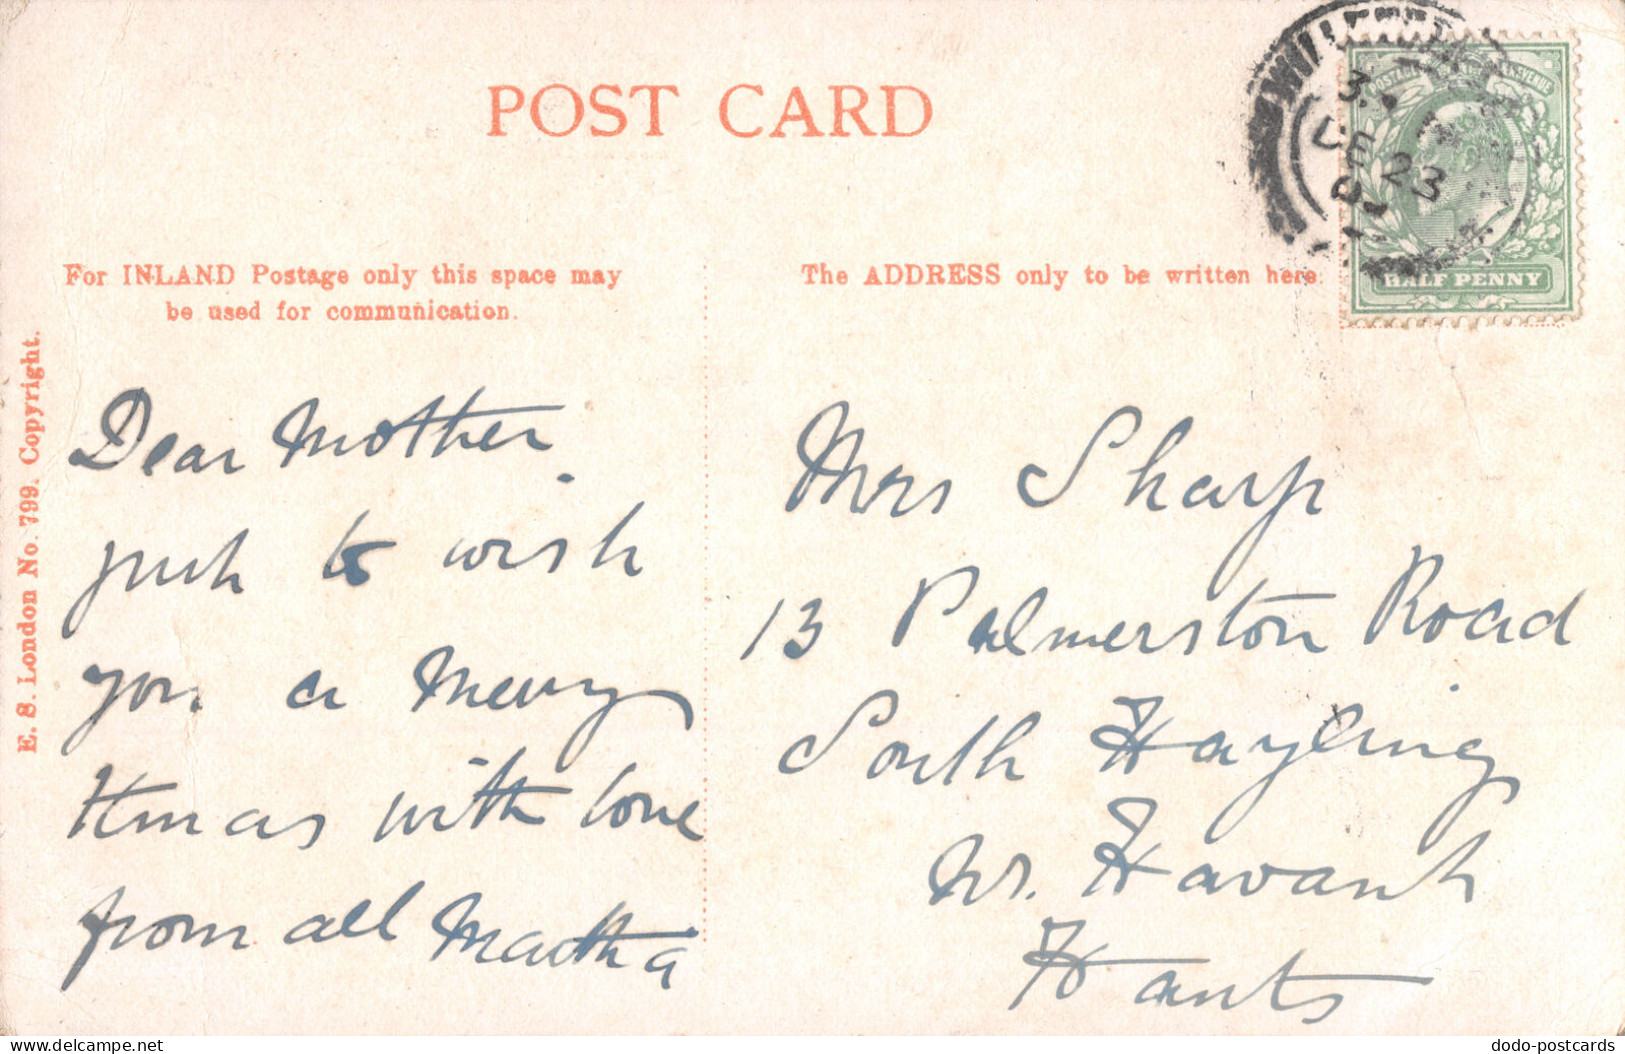 POST CARD
For INLAND Postage only this space may
be used for communication.
The ADDRESS only to be written here.
POSTAGE REVENUE
HALF PENNY
DE 23
E. S. London No. 799. Copyright.
Dear Mother
just to wish
you a Merry
Xmas with love
from all Martha
Mrs Sharp
13 Palmerston Road
South Hayling
Nr. Havant
Hants
Image hosted on Delcampe.net
dodo-postcards